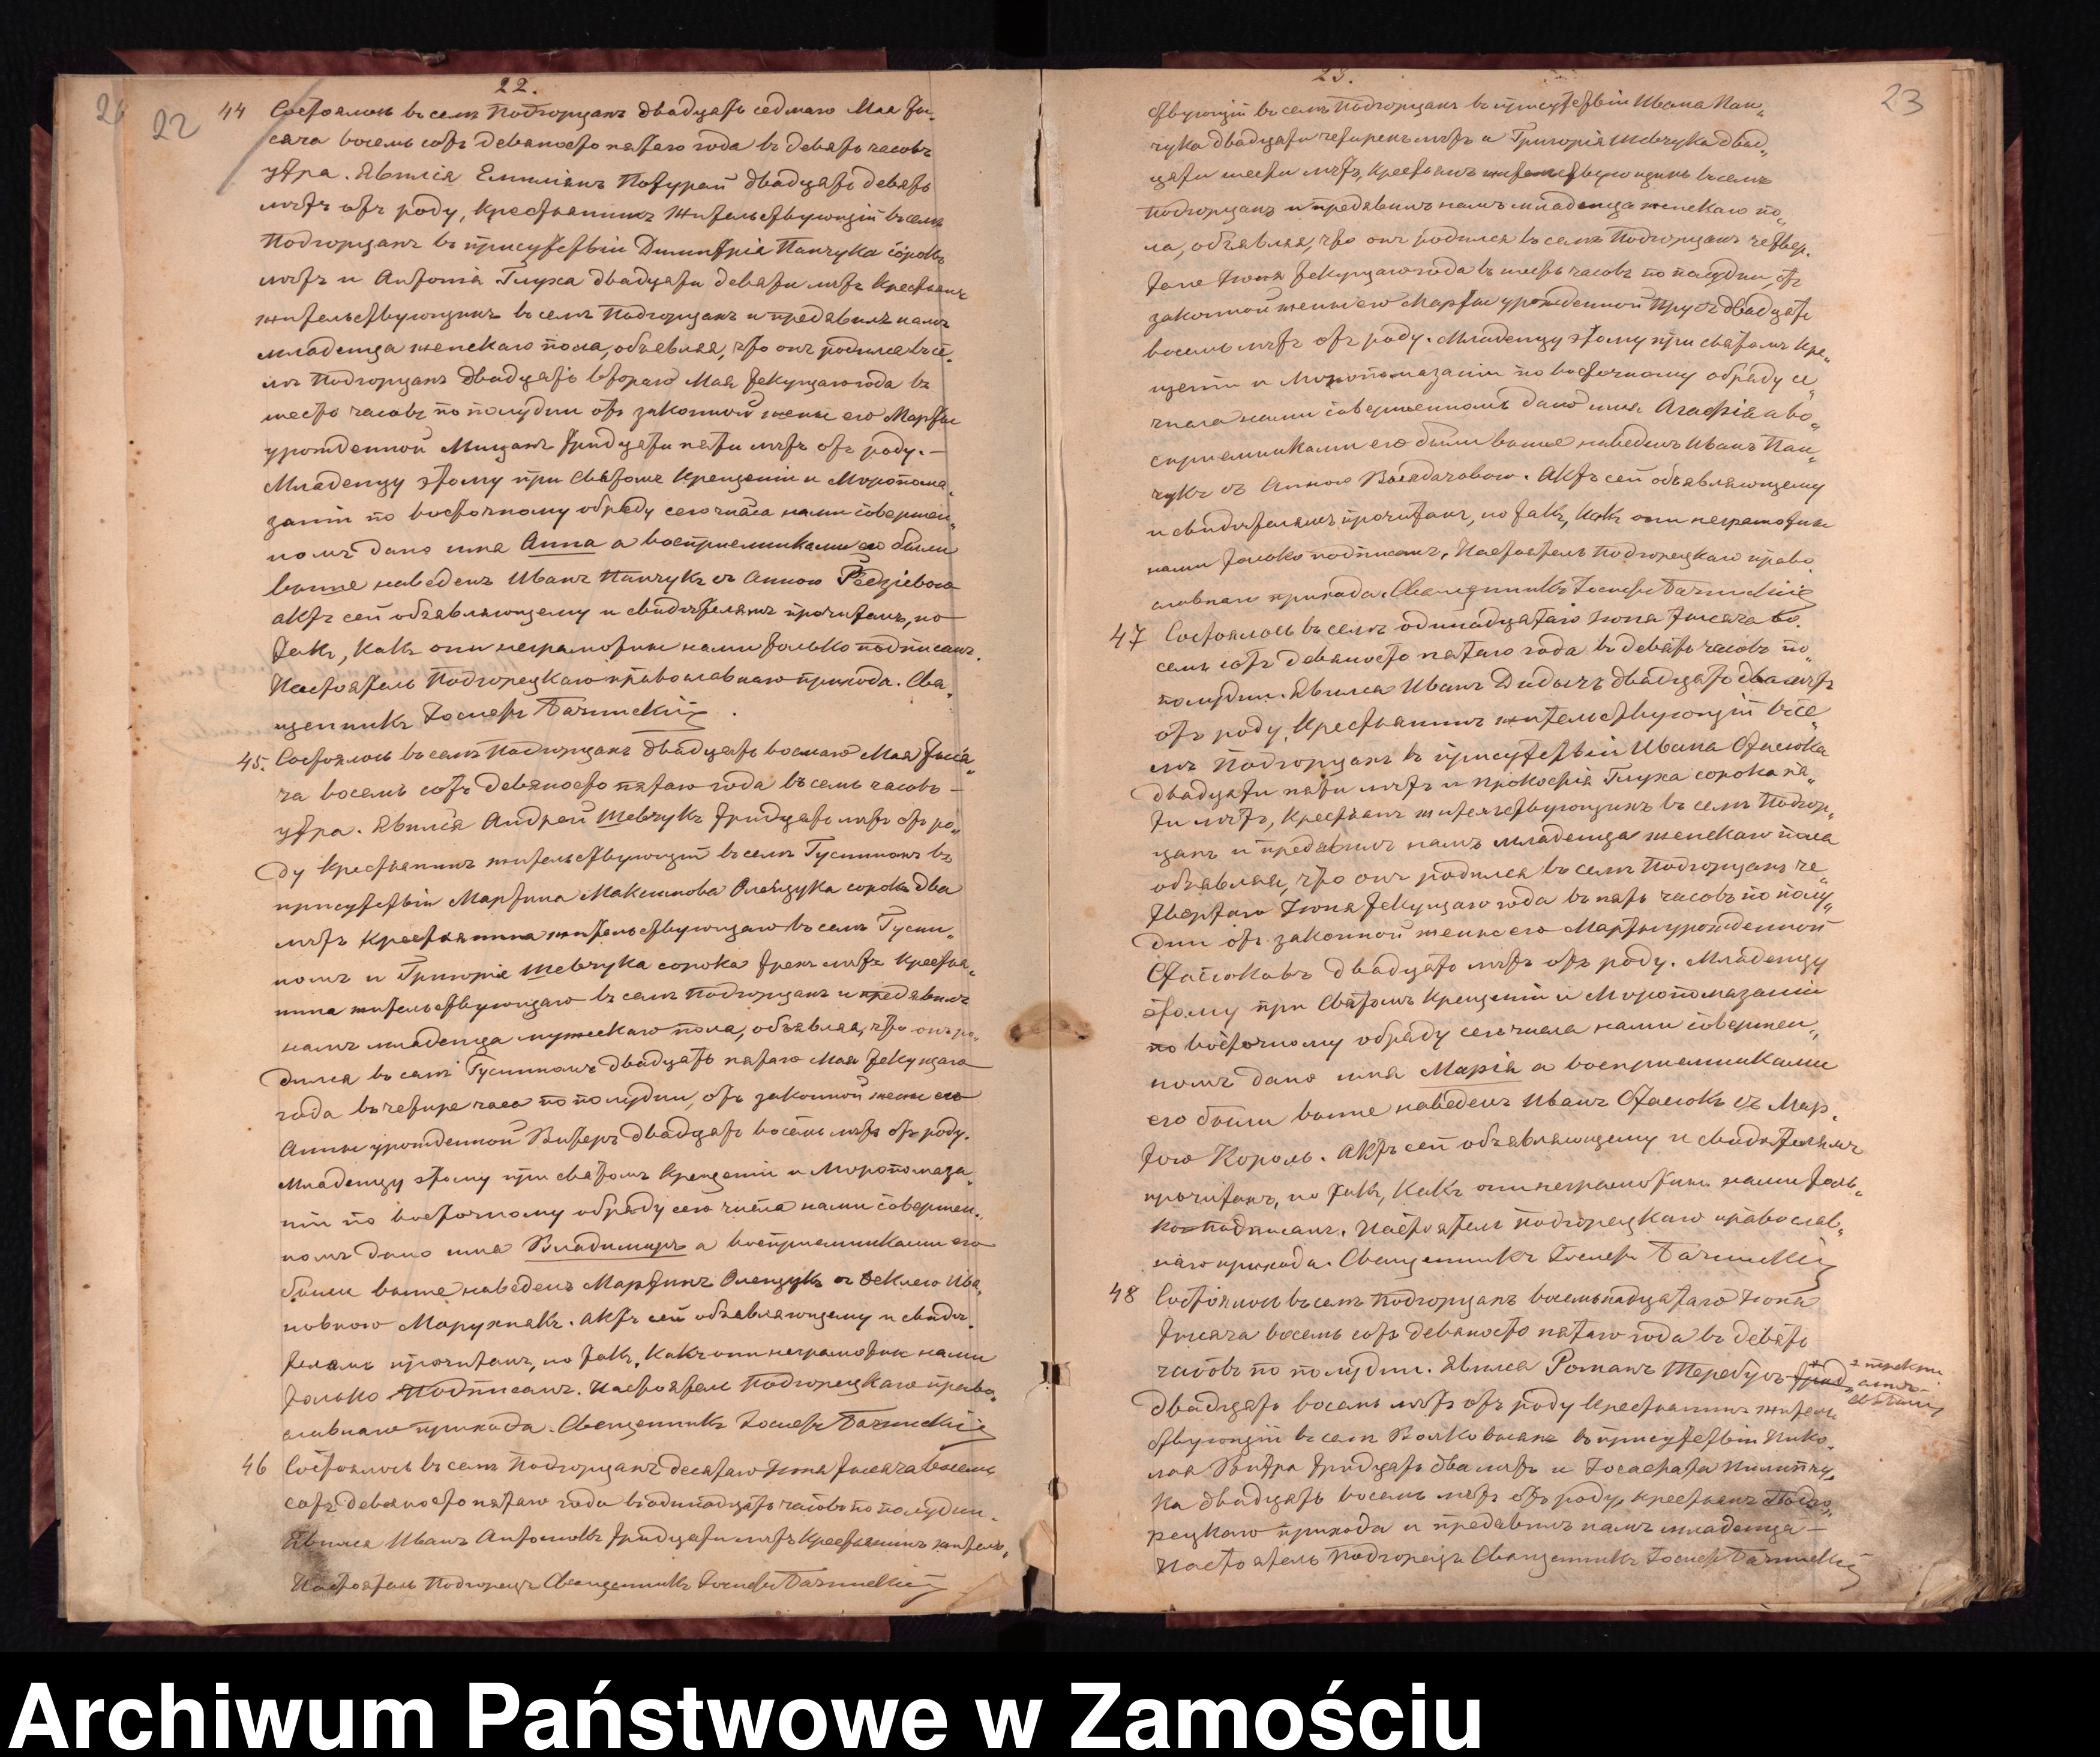 22.
26
22
44 Состоялось въ селѣ Подгорцахъ двадцать седмаго Мая ты-
сяча восемь сотъ девяносто пятаго года въ девять часовъ
утра. Явился Емиліянъ Потурай двадцать девять
лѣтъ отъ роду, крестьянинъ жительствующій въ селѣ
Подгорцахъ въ присутствіи Димитрія Панчука сорокъ
лѣтъ и Антонія Глуха двадцати девяти лѣтъ крестьянъ
жительствующихъ въ селѣ Подгорцахъ и предявилъ намъ
младенца женскаго пола, объявляя, что онъ родился въ се-
лѣ Подгорцахъ двадцать втораго Мая текущаго года въ
шесть часовъ по полудни отъ законной жены его Марфы
урожденной Мицахъ тридцати пяти лѣтъ отъ роду. —
Младенцу этому при Святомъ крещеніи и Миропома-
заніи по восточному обряду сего числа нами совершен-
номъ дано имя Анна а воспріемниками его были
выше наведенъ Иванъ Панчукъ съ Анною
актъ сей объявляющему и свидѣтелямъ прочитанъ, но
такъ, какъ они неграмотны нами только подписанъ.
Настоятель Подгорецкаго православнаго прихода. Свя-
щенникъ Іосифъ Бачинскій.
45. Состоялось въ селѣ Подгорцахъ двадцать восмаго Мая тыся-
ча восемь сотъ девяносто пятаго года въ семь часовъ —
утра. Явился Андрей Шевчукъ тридцать лѣтъ отъ ро-
ду крестьянинъ жительствующій въ селѣ Гусинномъ въ
присутствіи Мартина Максимова Оленцука сорокъ два
лѣтъ крестьянина жительствующаго въ селѣ Гусин-
номъ и Григорія Шевчука сорока трехъ лѣтъ крестья-
нина жительствующаго въ селѣ Подгорцахъ и предявилъ
намъ младенца мужескаго пола, объявляя, что онъ ро-
дился въ селѣ Гусинномъ двадцать пятаго Мая текущаго
года въ четыре часа по полудни, отъ законной жены его
Анны урожденной Витеръ двадцать восемь лѣтъ отъ роду.
Младенцу этому при святомъ крещеніи и Миропомаза-
ніи по восточному обряду сего числа нами совершен-
номъ дано имя Владимиръ а воспріемниками его
были выше наведенъ Мартинъ Оленцукъ съ Ѳеклею Ива-
новною Марухнякъ. актъ сей объявляющему и свидѣ-
телямъ прочитанъ, но такъ, какъ они неграмотны нами
только подписанъ. Настоятель Подгорецкаго право-
славнаго прихода. Священникъ Іосифъ Бачинскій
46 Состоялось въ селѣ Подгорцахъ десятаго Іюня тысяча восемь
сотъ девяносто пятаго года въ одинадцать часовъ по полудни.
Явился Иванъ Антонюкъ тридцати лѣтъ крестьянинъ житель-
Настоятель Подгорецъ Священникъ Іосифъ Бачинскій
23.
23
ствующій въ селѣ Подгорцахъ въ присутствіи Ивана Пан-
чука двадцати четырехъ лѣтъ и Григорія Шевчука двад-
цати шести лѣтъ, крестьянъ жительствующихъ въ селѣ
Подгорцахъ и предявилъ намъ младенца женскаго по-
ла, объявляя, что онъ родился въ селѣ Подгорцахъ четвер-
таго Іюня текущаго года въ шесть часовъ по полудни, отъ
законной жены его Марфы урожденной двадцать
восемь лѣтъ отъ роду. Младенцу этому при святомъ кре-
щеніи и Миропомазаніи по восточному обряду се-
числа нами совершенномъ дано имя Агафія а во-
спріемниками его были выше наведенъ Иванъ Пан-
чукъ съ Анною. Актъ сей объявляющему
и свидѣтелямъ прочитанъ, но такъ, какъ они неграмотны
нами только подписанъ. Настоятель Подгорецкаго право-
славнаго прихода. Священникъ Іосифъ Бачинскій
47 Состоялось въ селѣ одинадцатаго Іюня тысяча во-
семь сотъ девяносто пятаго года въ девять часовъ по-
полудни. Явился Иванъ Дидычъ двадцать два лѣтъ
отъ роду, крестьянинъ жительствующій въ се-
лѣ Подгорцахъ въ присутствіи Ивана Стасюка
двадцати пяти лѣтъ и Прокофія Глуха сорока пя-
ти лѣтъ, крестьянъ жительствующихъ въ селѣ Подгор-
цахъ и предявилъ намъ младенца женскаго пола
объявляя, что онъ родился въ селѣ Подгорцахъ че-
твертаго Іюня текущаго года въ пять часовъ по полу-
дни отъ законной жены его Марфы урожденной
Стасюковъ двадцать лѣтъ отъ роду. Младенцу
этому при Святомъ крещеніи и Миропомазаніи
по восточному обряду сего числа нами совершен-
номъ дано имя Марія а воспріемниками
его были выше наведенъ Иванъ Стасюкъ съ Мар-
тою Король. Актъ сей объявляющему и свидѣтелямъ
прочитанъ, но такъ, какъ они неграмотны нами толь-
ко подписанъ. Настоятель Подгорецкаго православ-
наго прихода. Священникъ Іосифъ Бачинскій
48 Состоялось въ селѣ Подгорцахъ восемьнадцатаго Іюня
тысяча восемь сотъ девяносто пятаго года въ девять
часовъ по полудни. Явился Романъ Теребусъ
двадцать восемь лѣтъ отъ роду крестьянинъ житель-
ствующій въ селѣ въ присутствіи Нико-
лая тридцать два лѣтъ и Іосафата Пилипчу-
ка двадцать восемь лѣтъ отъ роду, крестьянъ Подго-
рецкаго прихода и предявилъ намъ младенца —
Настоятель Подгорецъ Священникъ Іосифъ Бачинскій
Archiwum Państwowe w Zamościu